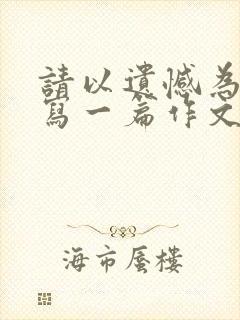 請以遺憾為
寫一篇作文
海市蜃樓